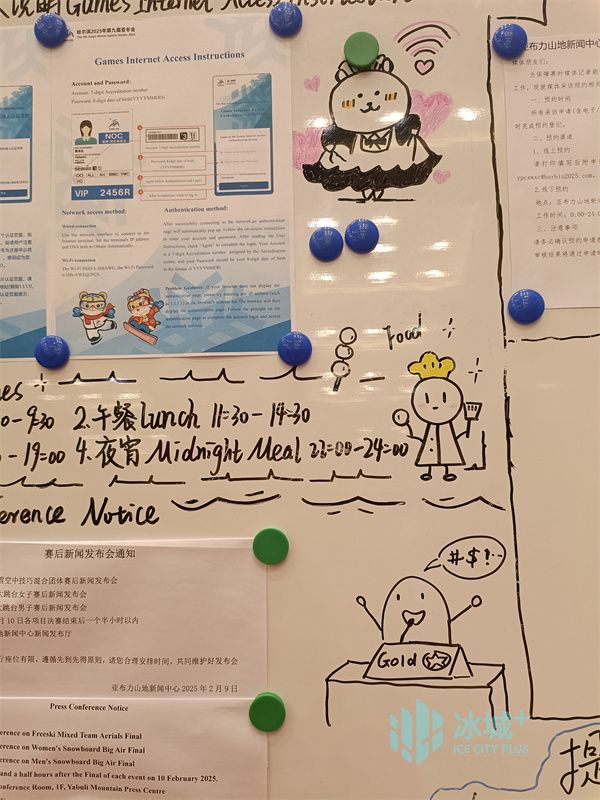 说明 Games Internet Access Instructions
哈尔滨2025年第九届亚冬会
The 9th Asian Winter Games Harbin 2025
Games Internet Access Instructions
Account and Password:
Account: 7-digit Accreditation number
Password: 8-digit date of birth(YYYYMMDD)
NOC
VIP 2456R
Network access method:
Wired connection
Use the network interface to connect to the
Internet terminal. Set the terminal's IP address
and DNS both to Obtain Automatically.
Wi-Fi connection
Authentication method:
After successfully connecting to the network, an authentication
page will automatically pop up. Follow the on-screen instructions
to enter your account and password. After reading the User
Instructions, check "Agree" to complete the login. Your Account
is a 7-digit Accreditation number assigned by the Accreditation
centre, and your Password should be your 8-digit date of birth
in the format of YYYYMMDD.
Problem Guidance: If your browser does not display the
authentication page, please try entering any IP address (such
as 1.1.1.1) in the browser's address bar. The browser will then
display the authentication page. Follow the prompts on the
authentication page to complete the account login and access
the network services.
亚布力山地新闻中心
媒体朋友们:
为保障赛时媒体记者能
工作,现就媒体采访预约相关
一、预约时间
所有采访申请(含电子/
时完成预约登记。
二、预约渠道
1.线上预约
请打印填写后附申
2.线下预约
地点:亚布力山地新闻
工作时间:0:00-24:0
三、注意事项
请务必确认预约申请表
审核结果将通过申请时
Food
0-9:30 2.午餐 Lunch 11:30-14:30
-19:00 4.夜宵 Midnight Meal 22:00-24:00
ference Notice
赛后新闻发布会通知
雪空中技巧混合团体赛后新闻发布会
大跳台女子赛后新闻发布会
大跳台男子赛后新闻发布会
月 10 日各项目决赛结束后一个半小时以内
地新闻中心新闻发布厅
厅座位有限,遵循先到先得原则,请您合理安排时间,共同维护好发布会
亚布力山地新闻中心 2025 年 2 月 9 日
Press Conference Notice
ference on Freeski Mixed Team Aerials Final
ference on Women's Snowboard Big Air Final
ference on Men's Snowboard Big Air Final
and a half hours after the Final of each event on 10 February 2025.
onference Room, 1F, Yabuli Mountain Press Centre
#$!·
Gold
冰城+
ICE CITY PLUS
提